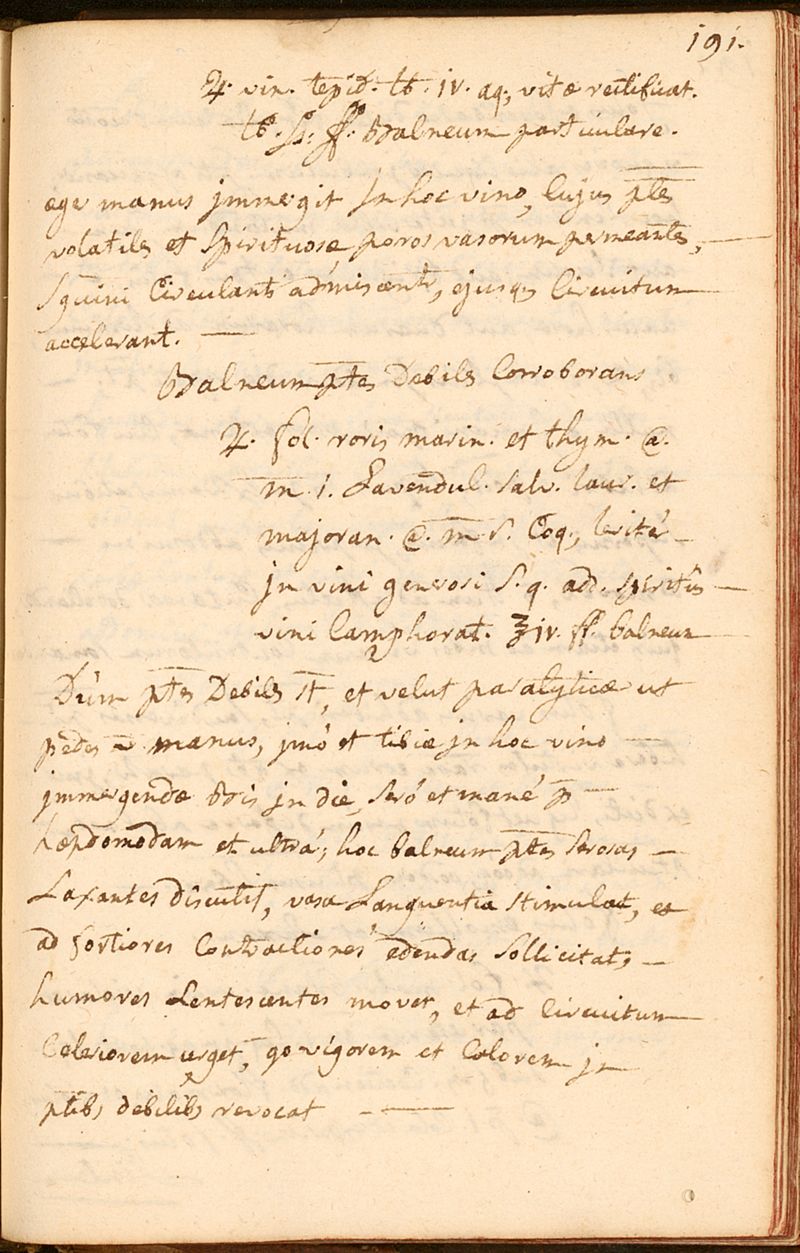 191.
♃. vin. tepid. ℔. iv. aq, vitæ rectificat.
℔. ſſ. ff. Balneum particulare.
æger manus jmmergit Jn hoc vino, Cujus ptes
volatiles et Spirituosæ poros vasorum permeantes,
Sguini Circulanti admiscentr, ejusq, Circuitum
accelerant.
Balneum ptes Debiles Corroborans
♃. fol. roris marin. et thym. a.
m. 1. Lavendul. salv. laur. et
majoran. a. m. s. Coq, levitér
jn vini generosi s. q. add. spiritûs
vini Camphorat. ℥iv. ff. balneum
Dùm ptes Debiles st, et velut paralyticæ ut
pedes manus, jmó et tibiæ jn hoc vino
jmmergendæ bis jn die, seró et mané p
hæpdomodam et ultrá; hoc balneum ptes serosas
Laxantes discutit, vasa Languentia stimulat, et
ad fortiores Contractiones edendas sollicitat,
humores Lentescentes movet, et ad Circuitum
Celeriorem urget, go vigorem et Colorem jn
ptib, debilib, revocat